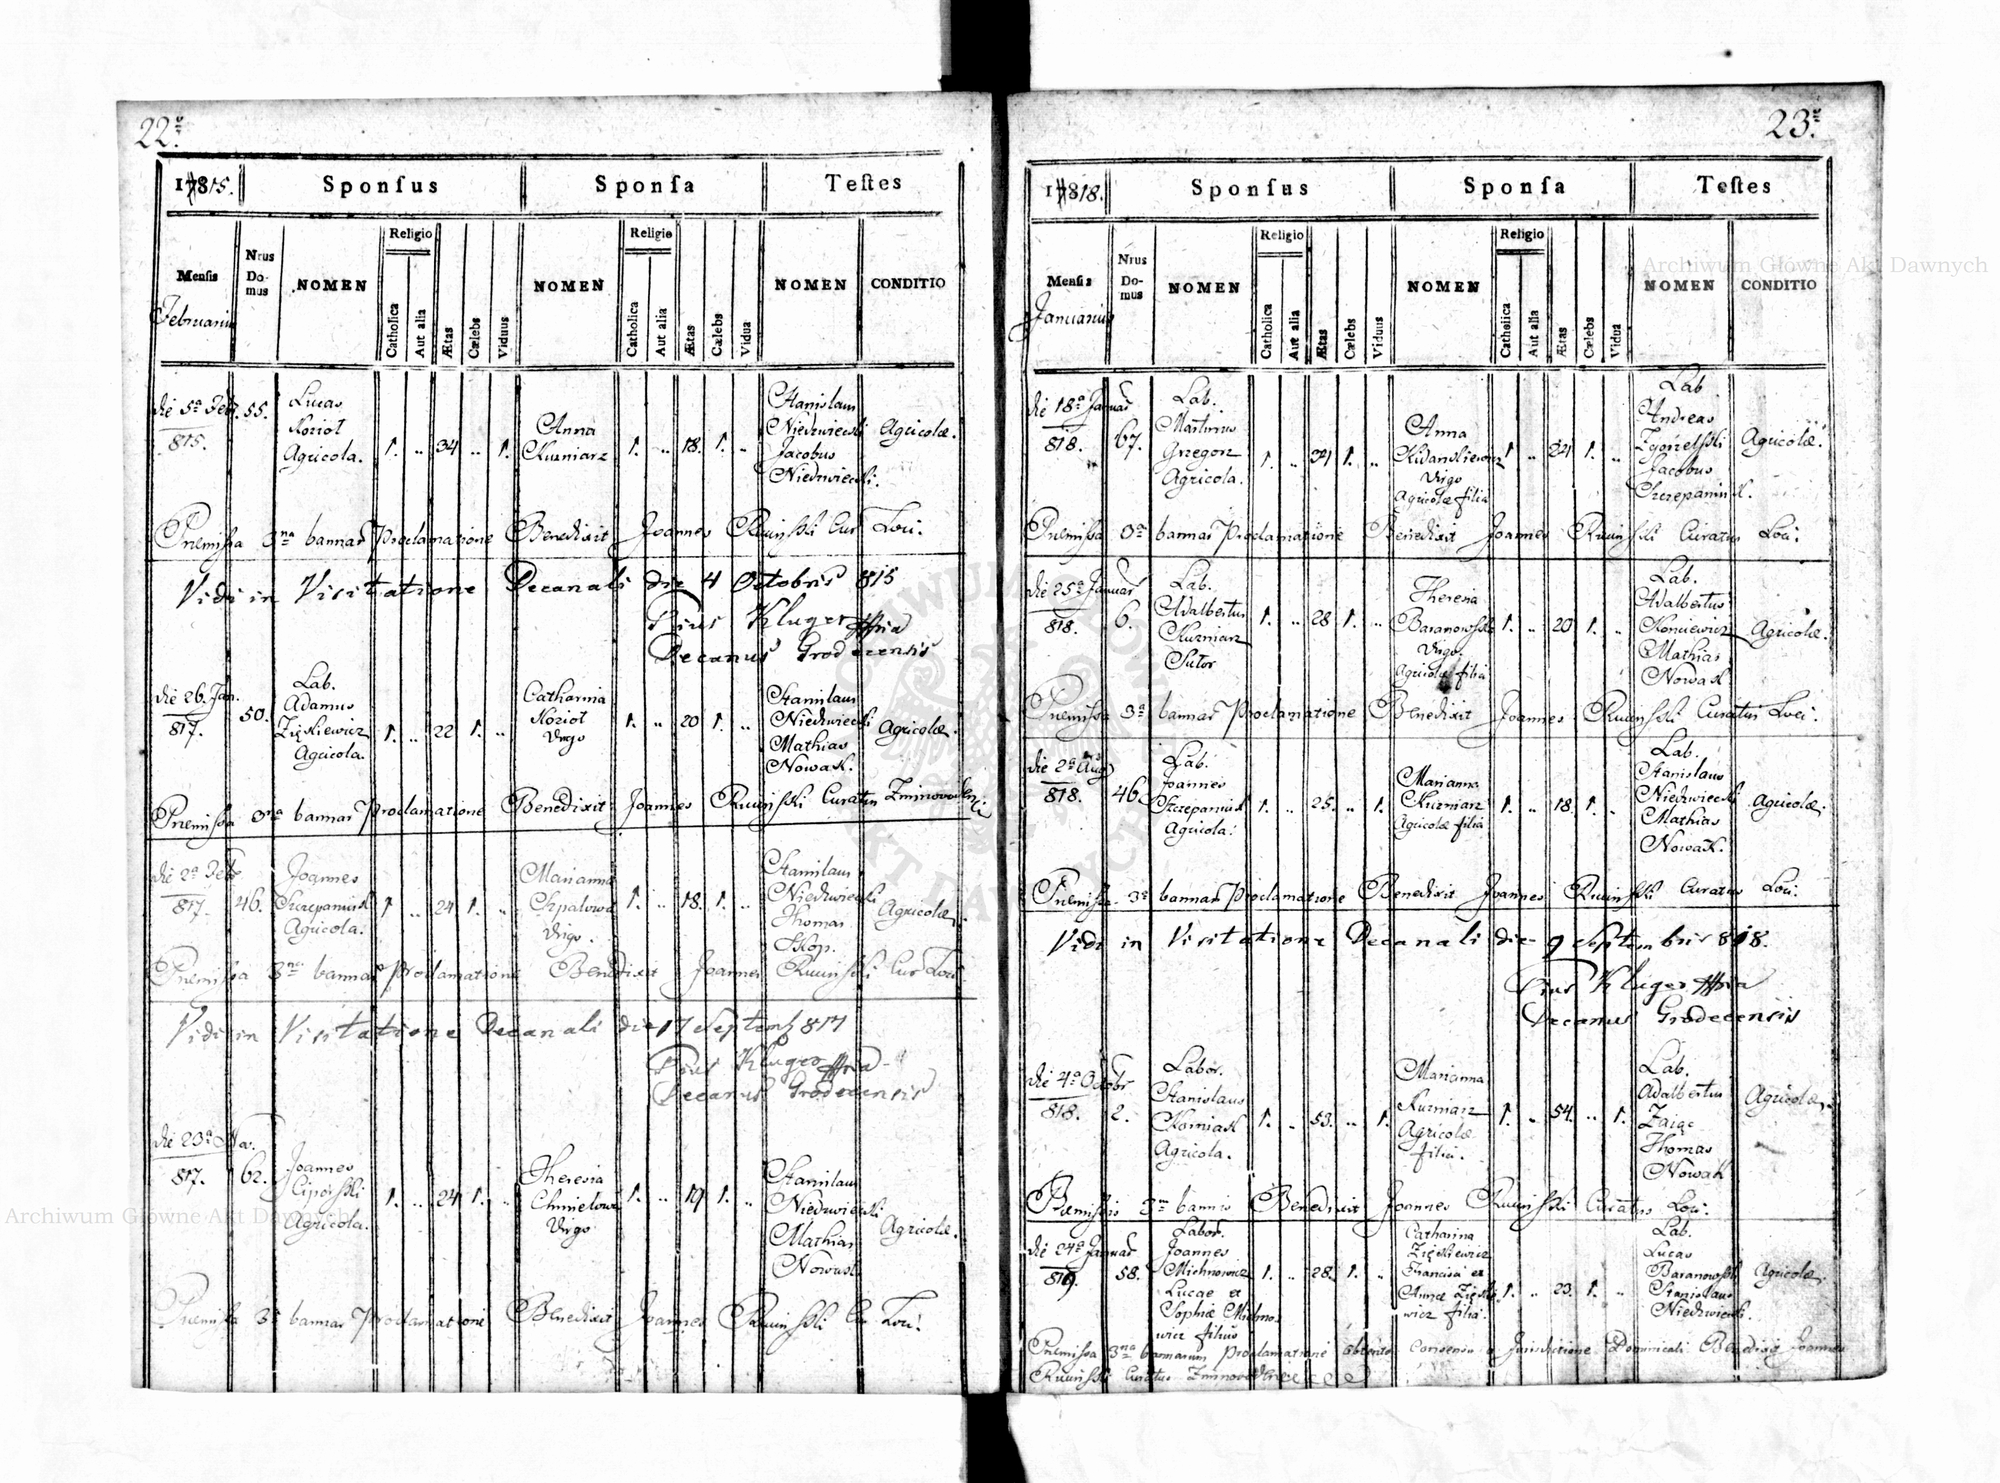 22.
1815.
Sponsus
Sponsa
Testes
Mensis
Februarius
Nrus Domus
NOMEN
Religio
Catholica
Aut alia
Ætas
Cælebs
Viduus
NOMEN
Religio
Catholica
Aut alia
Ætas
Cælebs
Vidua
NOMEN
CONDITIO
die 5a Feb. 815.
55.
Lucas
Koziol
Agricola.
1. .. 34 .. 1.
Anna
Kuzniarz
1. .. 18. 1. ..
Stanislaus
Niedzwiecki
Jacobus
Niedzwiecki.
Agricolæ.
Præmissa 3na bannar Proclamatione Benedixit Joannes Cur Loci.
Vidi in Visitatione Decanali die 4 Octobris 815
Pius Kluger
Decanus Grodecensis
die 26. Jan. 817.
50.
Lab.
Adamus
Zięskiewicz
Agricola.
1. .. 22 1. ..
Catharina
Koziol
Virgo
1. .. 20 1. ..
Stanislaus
Niedzwiecki
Mathias
Nowak.
Agricolæ.
Præmissa 3na bannar Proclamatione Benedixit Joannes Curatus
die 2a Feb 817.
46.
Joannes
Szczepaniak
Agricola.
1 .. 24 1. ..
Marianna
Virgo.
1. .. 18. 1. ..
Stanislaus
Niedzwiecki
Thomas
Skop.
Agricolæ.
Præmissa 3na bannar Proclamatione Benedixit Joannes Cur Loci
Vidi in Visitatione Decanali die 17 Septemb 817
Pius Kluger
Decanus Grodecensis
die 23a 817.
62.
Joannes
Agricola.
1. .. 24 1. ..
Theresia
Virgo
1. .. 19 1. ..
Stanislaus
Niedzwiecki
Mathias
Nowak
Agricolæ.
Præmissa 3a bannar Proclamatione Benedixit Joannes Cur Loci.
23.
1818.
Sponsus
Sponsa
Testes
Mensis
Januarius
Nrus Domus
NOMEN
Religio
Catholica
Aut alia
Ætas
Cælebs
Viduus
NOMEN
Religio
Catholica
Aut alia
Ætas
Cælebs
Vidua
NOMEN
CONDITIO
die 18a Januar 818.
67.
Lab.
Martinus
Grzegorz
Agricola.
1. .. 34 1. ..
Anna
Virgo
Agricolæ filia
1 .. 24 1. ..
Lab
Andreas
Jacobus
Szczepaniak.
Agricolæ.
Præmissa 3a bannar Proclamatione Benedixit Joannes Curatus Loci.
die 25a Januar 818.
6.
Lab.
Adalbertus
Kuzniarz
Sutor
1. .. 28 1. ..
Theresia
Baranowska
Virgo.
Agricolæ filia
1. .. 20 1. ..
Lab.
Adalbertus
Koniewicz
Mathias
Nowak
Agricolæ.
Præmissa 3a bannar Proclamatione Benedixit Joannes Curatus Loci.
die 2a Aug 818.
46.
Lab.
Joannes
Szczepaniak
Agricola.
1. .. 25. .. 1.
Marianna
Kuzniarz
Agricolæ filia
1. .. 18. 1. ..
Lab.
Stanislaus
Niedzwiecki
Mathias
Nowak.
Agricolæ.
Præmissa 3a bannar Proclamatione Benedixit Joannes Curatus Loci.
Vidi in Visitatione Decanali die 9 Septembris 818.
Pius Kluger
Decanus Grodecensis
die 4a Octobr 818.
2.
Labor.
Stanislaus
Agricola.
1. .. 53. .. 1.
Marianna
Kuzniarz
Agricolæ
filia.
1. .. 54. .. 1.
Lab.
Adalbertus
Thomas
Nowak
Agricolæ.
Præmissis 3na bannis Benedixit Joannes Curatus Loci.
die 24a Januar 819.
58.
Labor.
Joannes
Michnowicz
Lucae et
Sophiæ Michno
wicz filius
1. .. 28. 1. ..
Catharina
Zięskiewicz
Francisci et
Annæ Zięskie
wicz filia.
1. .. 23. 1. ..
Lab.
Lucas
Baranowski
Stanislaus
Niedzwiecki.
Agricolæ.
Præmissa 3na bannarum Proclamatione obtento Consensu a Jurisdictione Dominicali Benedixit Joannes
Curatus
Archiwum Główne Akt Dawnych
Archiwum Główne Akt Dawnych
ARCHIWUM GŁÓWNE AKT DAWNYCH